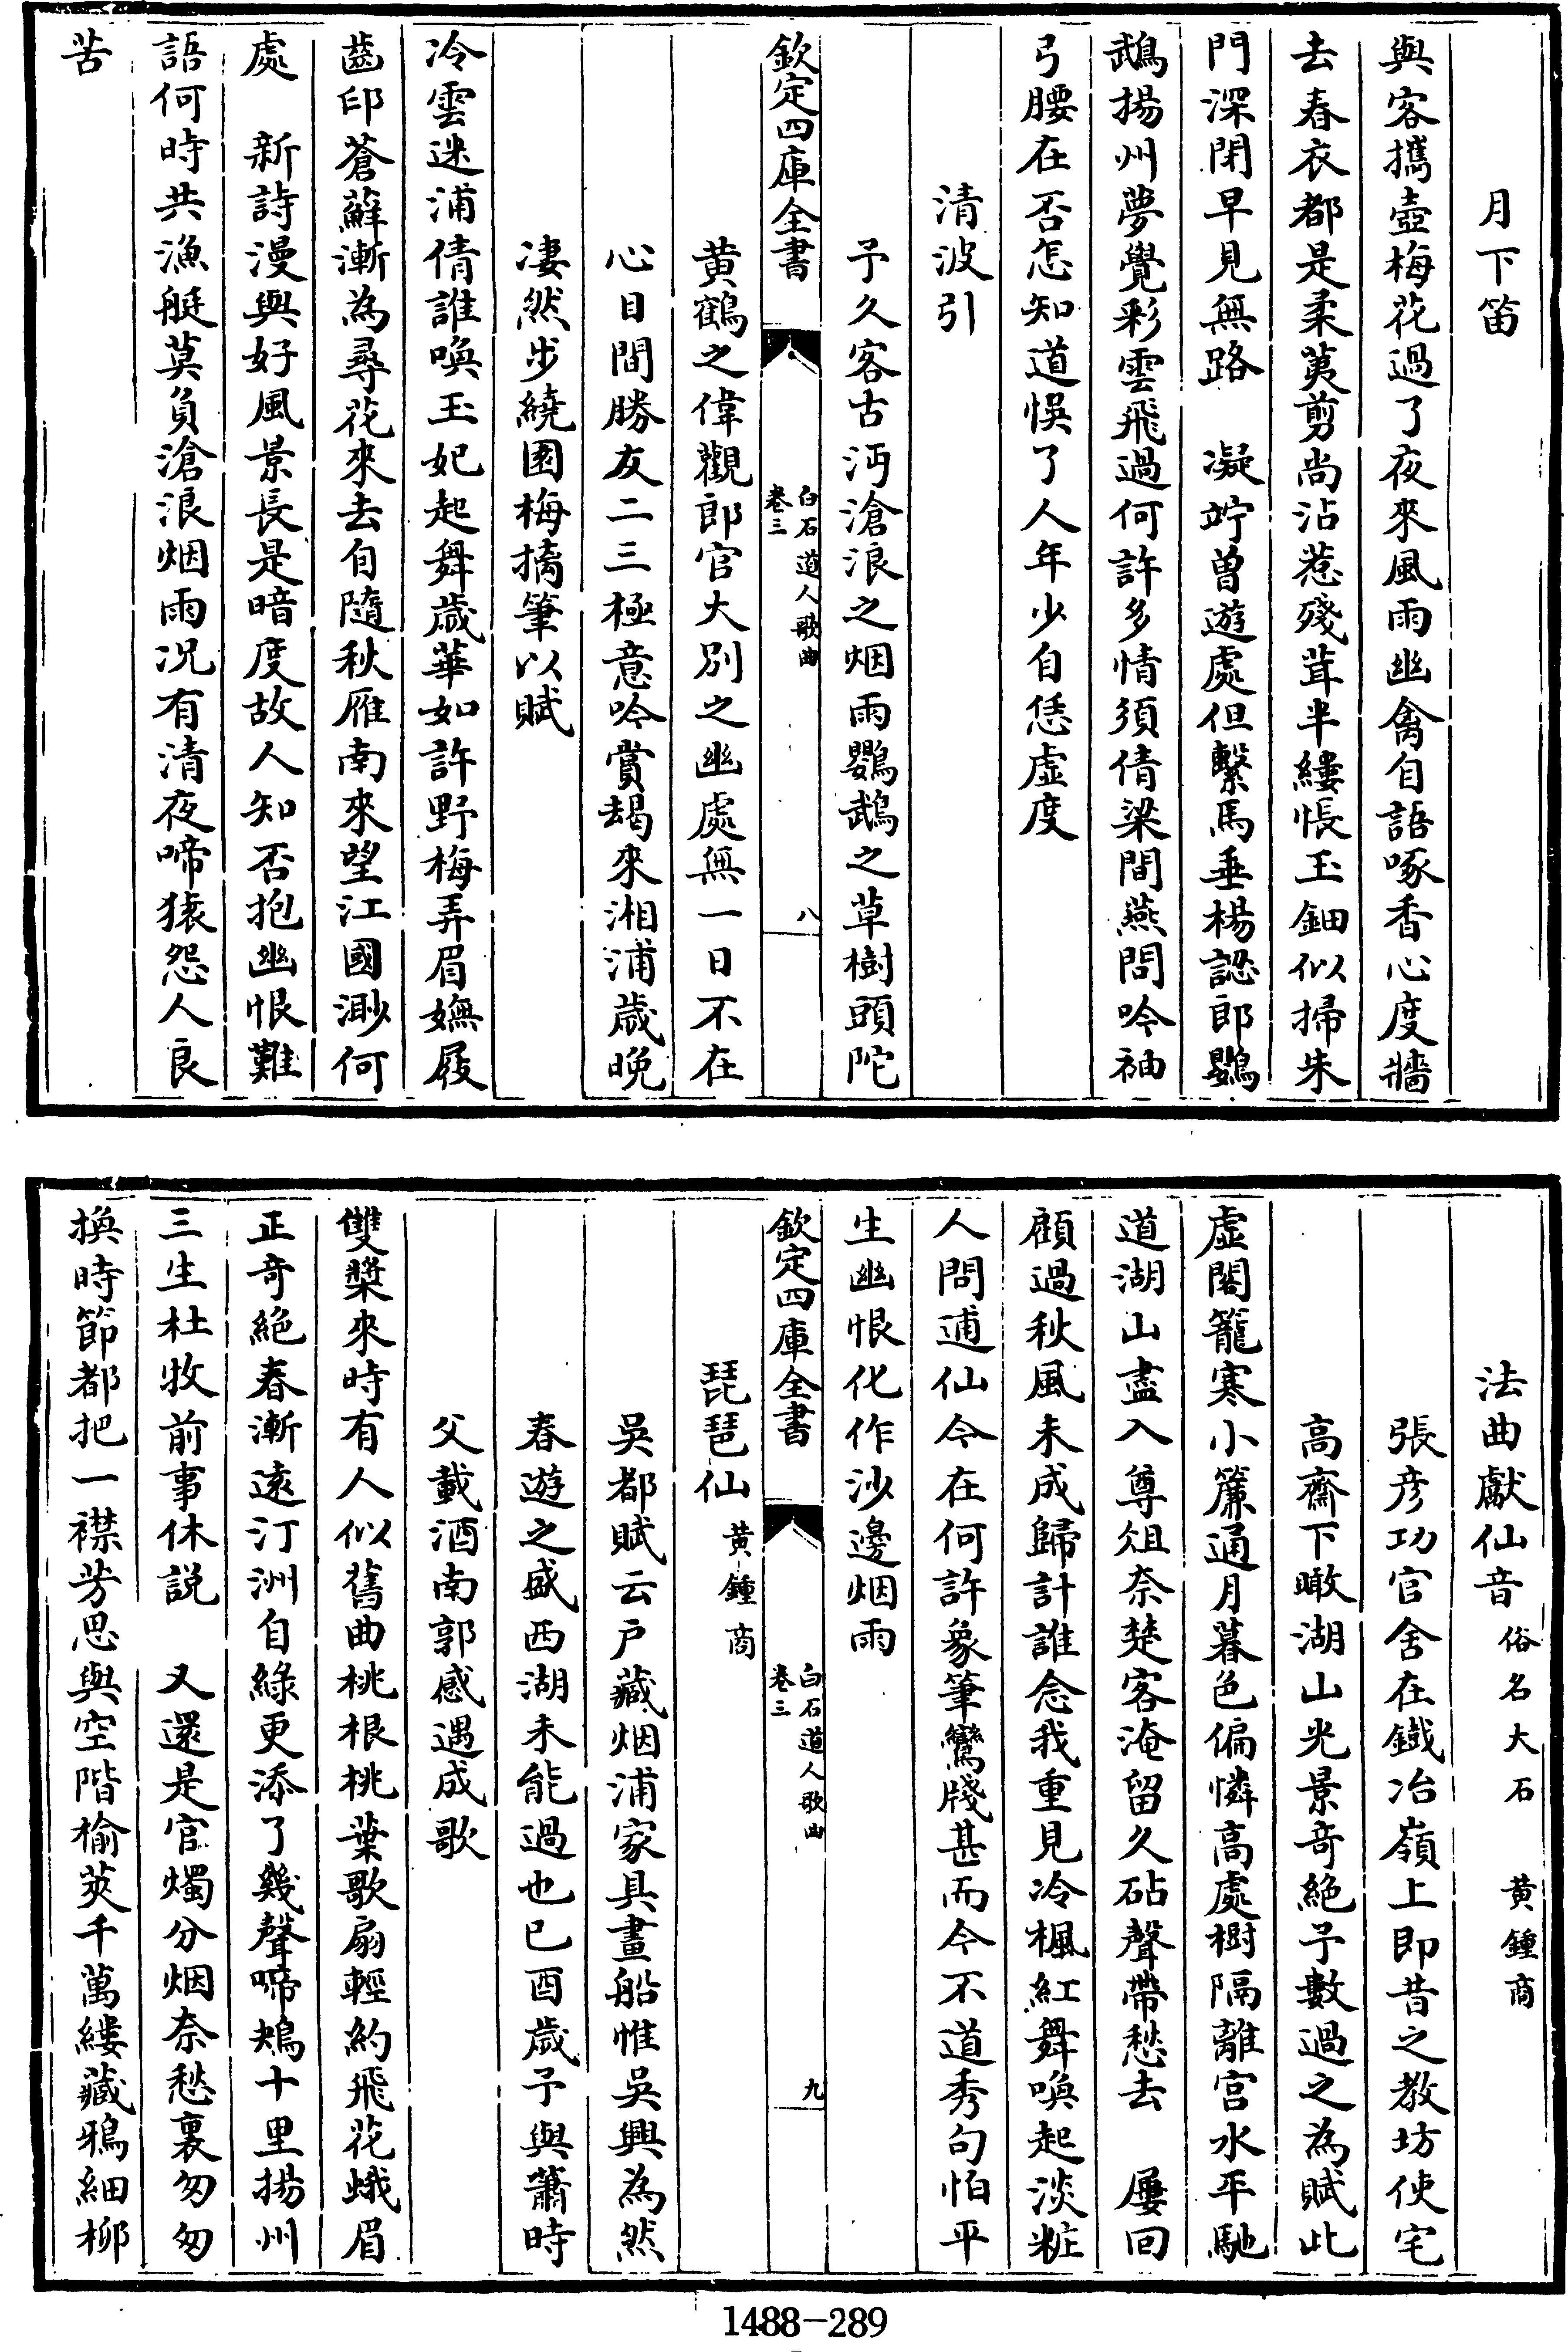 月下笛
與客攜壺梅花過了夜來風雨幽禽自語啄香心度牆
去春衣都是柔荑剪尚沾惹殘茸半縷悵玉鈿似掃朱
門深閉早見無路　凝竚曾遊處但繫馬垂楊認郎鸚
鵡揚州夢覺彩雲飛過何許多情須倩梁間燕問吟袖
弓腰在否怎知道悞了人年少自恁虛度
清波引
予久客古沔滄浪之烟雨鸚鵡之草樹頭陀
欽定四庫全書
白石道人歌曲
卷三
八
黃鶴之偉觀郎官大別之幽處無一日不在
心目間勝友二三極意吟賞朅來湘浦歲晚
凄然步繞園梅摛筆以賦
冷雲迷浦倩誰喚玉妃起舞歲華如許野梅弄眉嫵屐
齒印蒼蘚漸為尋花來去自隨秋雁南來望江國渺何
處　新詩漫與好風景長是暗度故人知否抱幽恨難
語何時共漁艇莫負滄浪烟雨况有清夜啼猿怨人良
苦
法曲獻仙音俗名大石　黃鍾商
張彥功官舍在鐵冶嶺上即昔之教坊使宅
高齋下瞰湖山光景奇絶予數過之為賦此
虛閣籠寒小簾通月暮色偏憐高處樹隔離宮水平馳
道湖山盡入尊俎奈楚客淹留久砧聲帶愁去　屢回
顧過秋風未成歸計誰念我重見冷楓紅舞喚起淡粧
人問逋仙今在何許象筆鸞牋甚而今不道秀句怕平
生幽恨化作沙邊烟雨
欽定四庫全書
白石道人歌曲
卷三
九
琵琶仙黃鍾商
吳都賦云戶藏烟浦家具畫船惟吳興為然
春遊之盛西湖未能過也已酉歲予與蕭時
父載酒南郭感遇成歌
雙槳來時有人似舊曲桃根桃葉歌扇輕約飛花蛾眉
正奇絶春漸遠汀洲自綠更添了幾聲啼鴂十里揚州
三生杜牧前事休説　又還是官燭分烟奈愁裏匆匆
換時節都把一襟芳思與空階榆莢千萬縷藏鴉細柳
1488-289